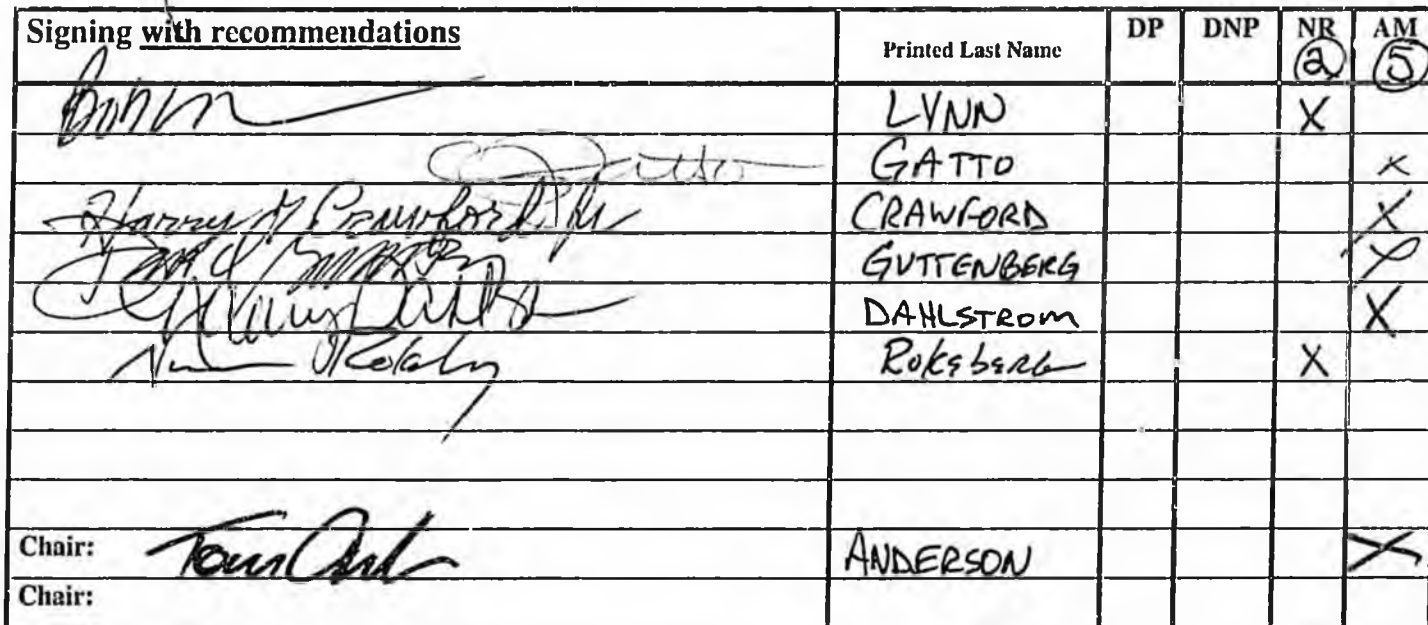 Signing with recommendations Printed Last Name DP DNP NR 2 AM 5
LYNN X
Gatto GATTO X
Harry Crawford Jr CRAWFORD X
David Guttenberg GUTTENBERG X
DAHLSTROM X
ROKEBERG X
Chair: Tom ANDERSON X
Chair: